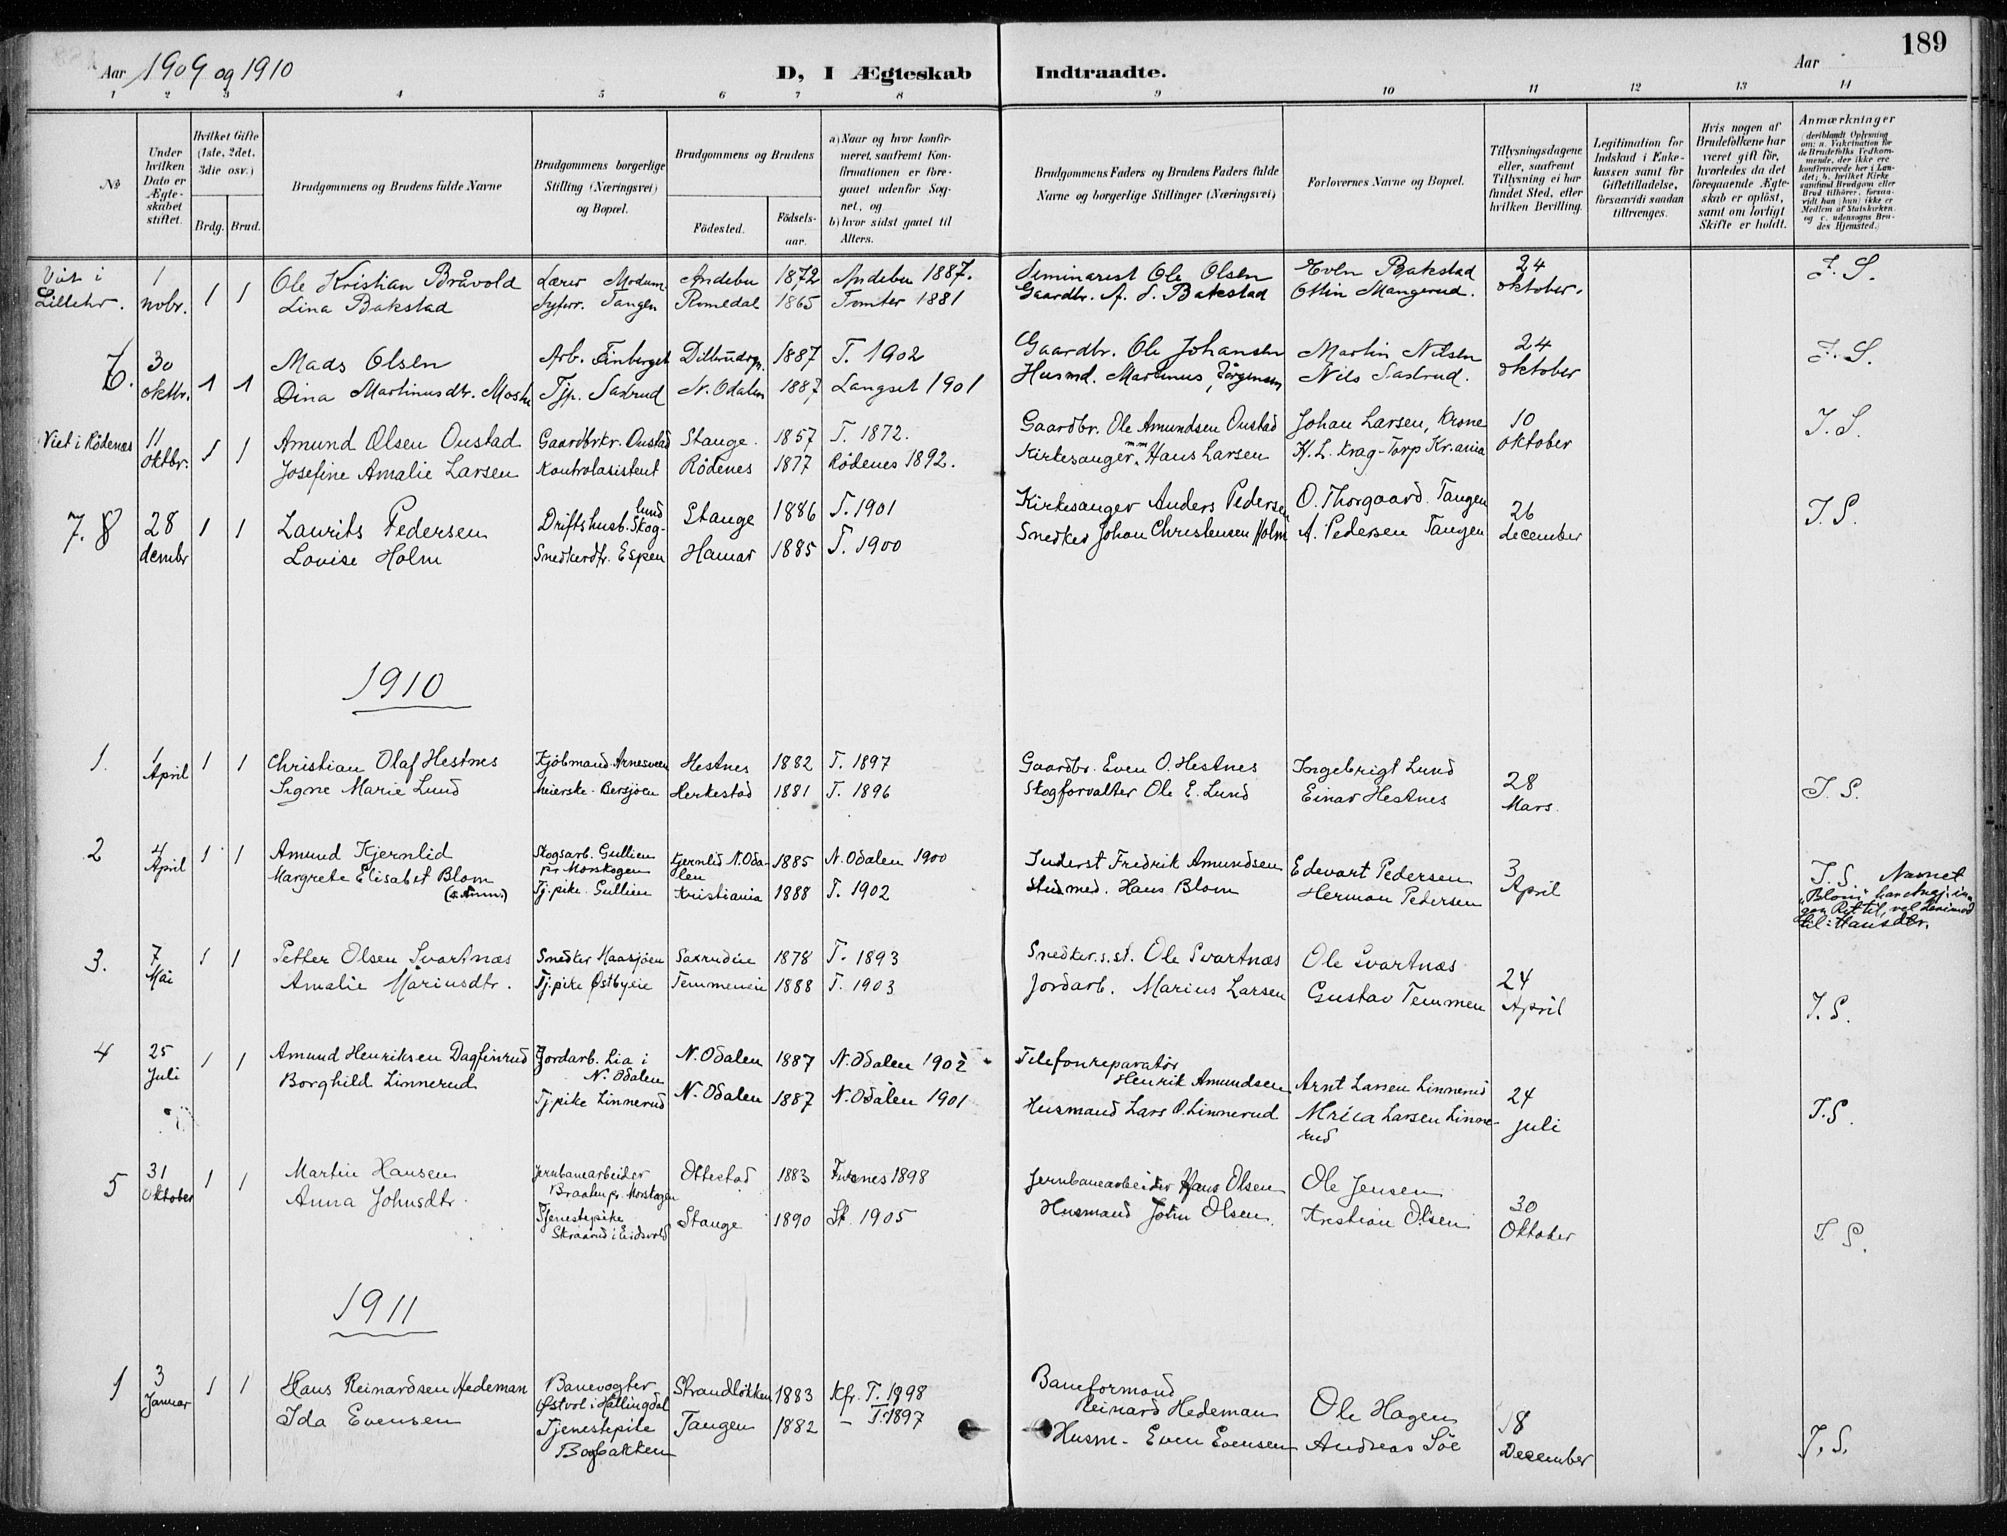 189
Aar 1909 og 1910
D, I Ægteskab Indtraadte.
Aar
1 2 3 4 5 6 7 8 9 10 11 12 13 14
No
Under hvilken Dato er Ægteskabet stiftet.
Hvilket Gifte (1ste, 2det, 3die osv.)
Brdg. Brud.
Brudgommens og Brudens fulde Navne
Brudgommens borgerlige Stilling (Næringsvei) og Bopæl.
Brudgommens og Brudens
Födested.
Födselsaar.
a) Naar og hvor konfirmeret, saafremt Konfirmationen er foregaaet udenfor Sognet, og
b) hvor sidst gaaet til Alters.
Brudgommens Faders og Brudens Faders fulde Navne og borgerlige Stillinger (Næringsvei)
Forlovernes Navne og Bopæl.
Tillysningsdagene eller, saafremt Tillysning ei har fundet Sted, efter hvilken Bevilling.
Legitimation for Indskud i Enkekassen samt for Giftetilladelse, forsaavidt saadan tiltrænges.
Hvis nogen af Brudefolkene har været gift för, hvorledes da det foregaaende Ægteskab er oplöst, samt om lovligt Skifte er holdt.
Anmærkninger
(deriblandt Oplysning om: a. Vakcination for de Brudefolks Vedkommende, der ikke ere konfirmerede her i Landet; b. hvilket Kirkesamfund Brudgom eller Brud tilhörer, forsaavidt han (hun) ikke er Medlem af Statskirken. og c. udensogns Brudes Hjemsted.)
Viet i Lillehr. 1 novbr. 1 1 Ole Kristian Bråvold Lærer Modum Andebu 1872 Andebu 1887. Seminarist Ole Olsen Even Bakstad 24 oktober. I. S.
Lina Bakstad Tangen Romedal 1865 Tomter 1881 Gaardbr. A. S. Bakstad Ottin Mangerud.
6. 30 oktbr. 1 1 Mads Olsen Arb. Finberget 1887 T. 1902 Gaardbr. Ole Johansen Martin Nilsen 24 oktober I. S.
Dina Martinusdr. Tjp. Saxrud N. Odalen 1887 Langset 1901 Husmd. Martinus Jörgensen Nils Saxrud.
Viet i Rödenes 11 oktbr. 1 1 Amund Olsen Oustad Gaardbrkr. Oustad Stange. 1857 T. 1872. Gaardbr. Ole Amundsen Oustad Johan Larsen, Krone 10 oktober I. S.
Josefine Amalie Larsen Kontrolasistent Rödenes 1877 Rödenes 1892. Kirkesanger Hans Larsen H. L. Krag-Torp Kr.ania
7. 8 28 dcembr 1 1 Laurits Pedersen Driftsbest. Skoglund Stange 1886 T. 1901 Kirkesanger Anders Pedersen O. Thorgaard Tangen 26 december I. S.
Lovise Holm Snedkerdtr. Espen Hamar 1885 T. 1900 Snedker Johan Christensen Holm A. Pedersen Tangen
1910
1. 1 April 1 1 Christian Olaf Hestnes Kjöbmand Arnesveen Hestnes 1882 T. 1897 Gaardbr. Even O. Hestnes Ingebrigt Lund 28 Mars. I. S.
Signe Marie Lund Meierske - Bersjöen Herkestad 1881 T. 1896 Skogforvalter Ole E. Lund Einar Hestnes
2 4 April 1 1 Amund Kjernlid Skogsarb. Gullien pr Morskogen Kjernlid N. Odalen 1885 N. Odalen 1900 Inderst Fredrik Amundsen Edevart Pedersen 3 April I. S. Navnet "Blom" har
Margrete Elisabet Blom Tj.pike Gullien Kristiania 1888 T. 1902 Hans Blom Herman Pedersen til: Hansdtr.
3. 7 Mai 1 1 Petter Olsen Svartnæs Snedker Kaasjöen Saxrudeie 1878 T. 1893 Snedker.s.st. Ole Svartnæs Ole Svartnæs 24 April I. S.
Amalie Mariusdtr. Tj.pike Østbyeie Temmeneie 1888 T. 1903 Jordarb. Marius Larsen Gustav Temmen
4 25 Juli 1 1 Amund Henriksen Dagfinrud Jordarb. Lia i N. Odalen N. Odalen 1887 N. Odalen 1902 Telefonreparatör Henrik Amundsen Arnt Larsen Linnerud 24 juli I. S.
Borghild Linnerud Tj.pike Linnerud N. Odalen 1887 N. Odalen 1901 Husmand Lars O. Linnerud Larsen Linnerud
5 31 Oktober 1 1 Martin Hansen Jernbanearbeider Braaten pr. Morskogen Ottestad 1883 Furnes 1898 Jernbanearbeider Hans Olsen Ole Jensen 30 Oktober I. S.
Anna Johnsdtr. Tjenestepike Skraarud i Eidsvold Stange 1890 St. 1905 Husmand John Olsen. Kristian Olsen
1911
1 3 Januar 1 1 Hans Reinardsen Hedeman Banevogter Østvol i Hallingdal Strandlökken 1883 Kfr. T. 1898 Baneformand Reinard Hedeman Ole Hagen 18 December I. S.
Ida Evensen Tjenestepike Bogbakken Tangen 1882 – T. 1897 Husm. Even Evensen Andreas Söe